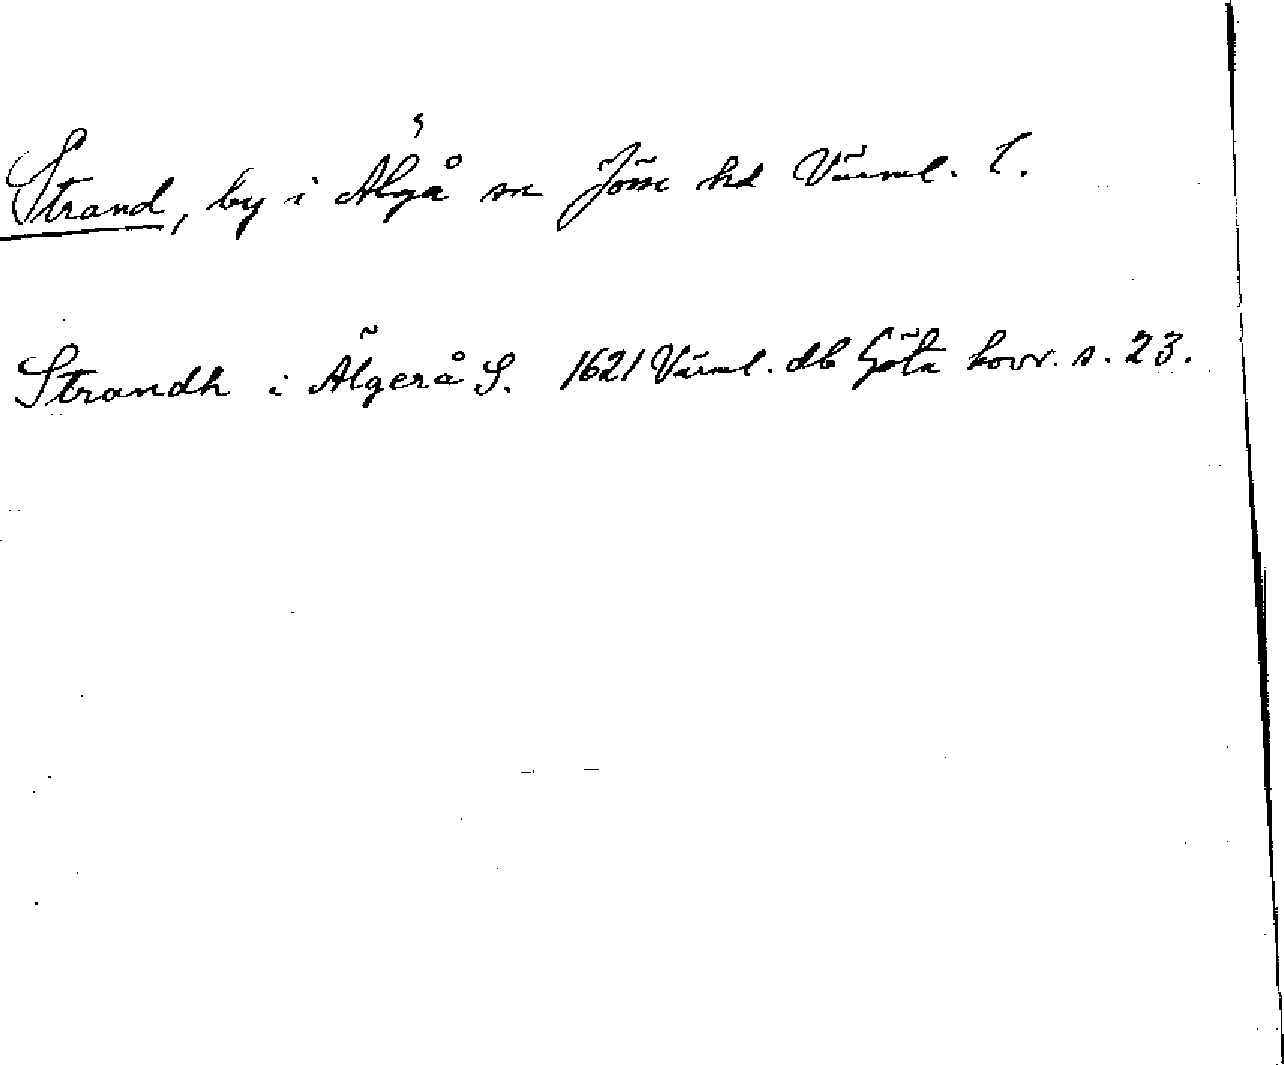 Strand, by i Älgå sn Jösse hd Värml. l.
Strandh i Älgerå S. 1621 Värml. db Göta hovr. s. 23.